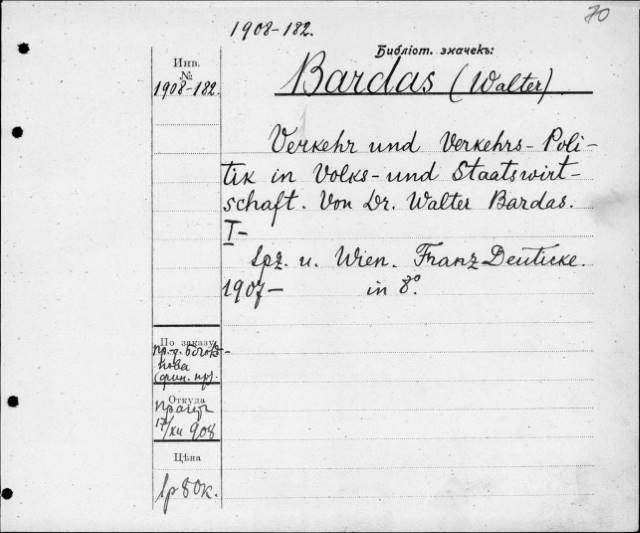 70
1908-182.
Инв.
№
1908-182.
Библіот. значекъ:
Bardas (Walter).
Verkehr und Verkehrs-Poli-
tik in Volks- und Staatswirt-
schaft. Von Dr. Walter Bardas.
I-
Lpz. u. Wien. Franz Deuticke.
1907- in 8°.
По заказу
пр.-д.
нова
(фин. пр).
Откуда
17/XII 908
Цѣна
1р 80к.